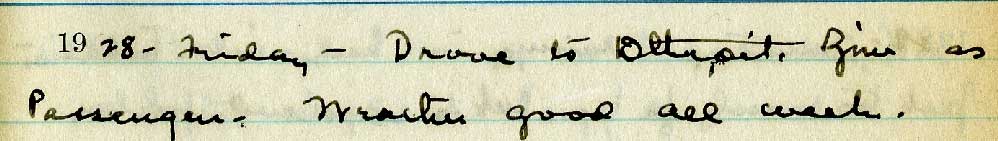 1928 - Friday - Drove to Detroit. as
Passenger - Weather good all week.